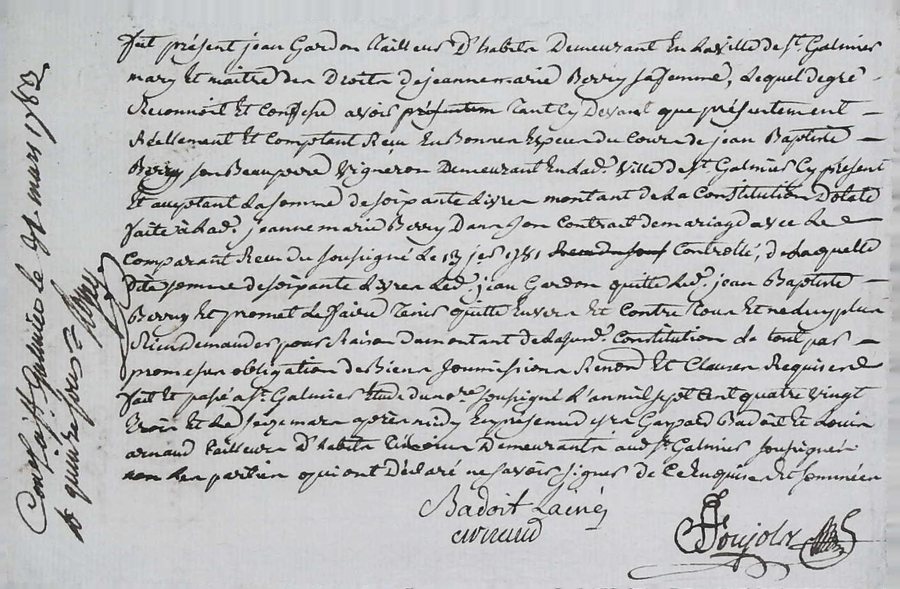 fut présent jean Gardon Tailleur D'habits Demeurant En la ville de St. Galmier
mary Et maitre des Droits de jeanne marie Berry sa femme, Lequel de gré -
Reconnoit Et Confesse avoir présentem tant Cy Devant que présentement -
Réellement Et Comptant Reçu En Bonnes Especes du Cours de jean Baptiste -
Berry son Beaupere Vigneron Demeurant En lad. Ville de St. Galmier Cy présent
Et acceptant la somme de soixante Livres montant de la Constitution Dotale
faite à lad. jeanne marie Berry Dans son Contrat de mariage avec Le
Comparant Reçu du soussigné Le 1781 Controllé, de Laquelle
Dite somme de soixante Livres Led. jean Gardon quitte Led. jean Baptiste -
Berry Et promet de faire Tenir quitte Envers Et Contre Tous Et ne du plus
Rien Demander pour Raison du montant de lasusd. Constitution de tout pas -
promesse obligation de Biens Soumissions Renon Et Clauses Requises
fait Et passé a St. Galmier Etude du no.re soussigné L'an mil sept Cent quatre Vingt
Trois Et Le seize mars après midy En présence de srs Gaspard Badoit Et Louis
arnaud Tailleur D'habits Demeurants aud. St. Galmier soussignés
non Les parties qui ont Déclaré ne savoir signer de Ce Enquises Et sommées
Badoit Lainé
arnaud
Soujolx
Conté à St. Galmier le 31 mars 1783
Rt quinze sous